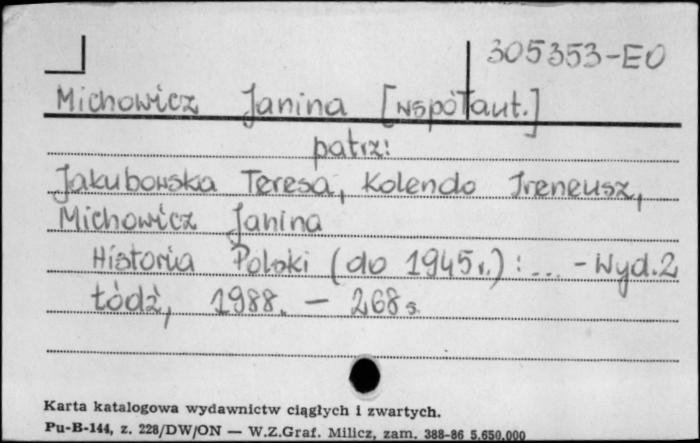 305353-EO
Michowicz Janina [współaut.]
patrz:
Jakubowska Teresa, Kolendo Ireneusz,
Michowicz Janina
Historia Polski (do 1945r.): ... - Wyd. 2
Łódź, 1988. - 268 s
Karta katalogowa wydawnictw ciągłych i zwartych.
Pu-B-144, z. 228/DW/ON — W.Z.Graf. Milicz, zam. 388-86 5.650.000